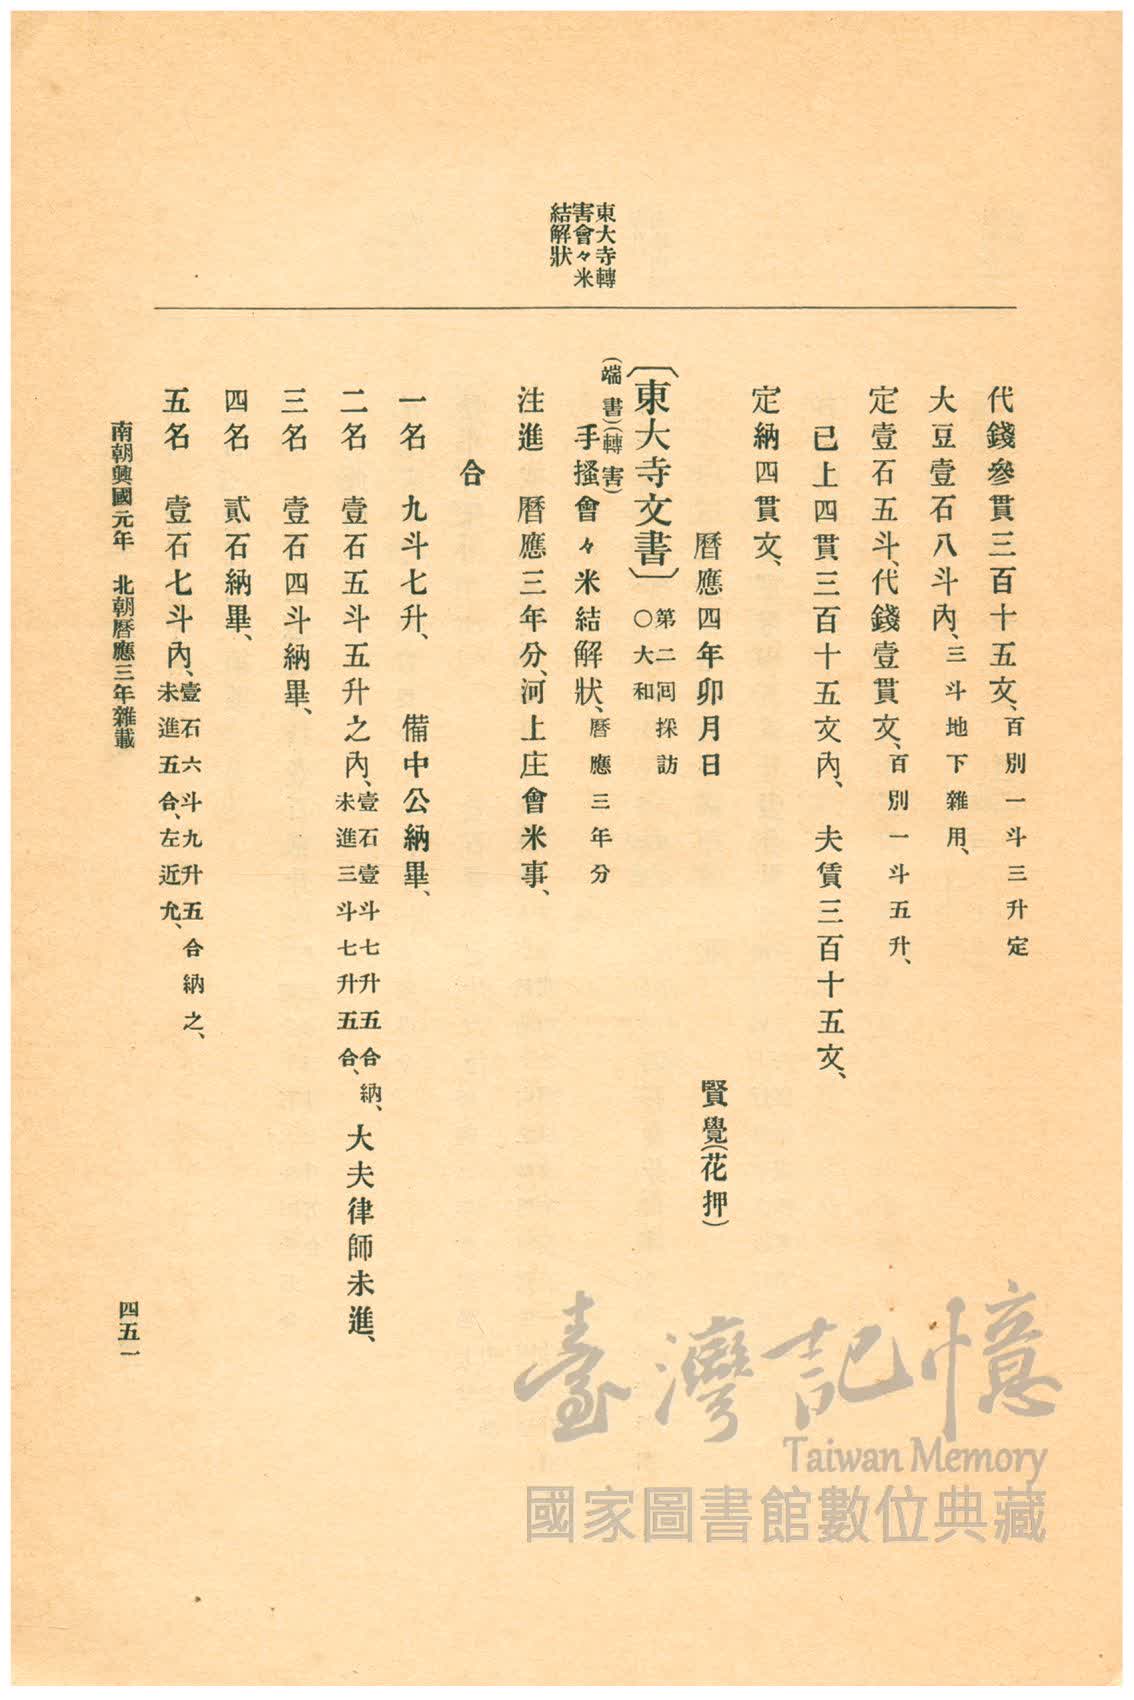 東大寺轉
害會々米
結解狀
代錢參貫三百十五文、百別一斗三升定
大豆壹石八斗內、三斗地下雜用、
定壹石五斗、代錢壹貫文、百別一斗五升、
已上四貫三百十五文內、夫賃三百十五文、
定納四貫文、
曆應四年卯月日　賢覺(花押)
〔東大寺文書〕第二囘採訪
○大和
(端書)(轉害)
手搔會々米結解狀、曆應三年分
注進　曆應三年分、河上庄會米事、
合
一名　九斗七升、　備中公納畢、
二名　壹石五斗五升之內、壹石壹斗七升五合納、
未進三斗七升五合、大夫律師未進、
三名　壹石四斗納畢、
四名　貳石納畢、
五名　壹石七斗內、壹石六斗九升五合納之、
未進五合、左近允、
南朝興國元年　北朝曆應三年雜載
四五一
臺灣記憶
Taiwan Memory
國家圖書館數位典藏